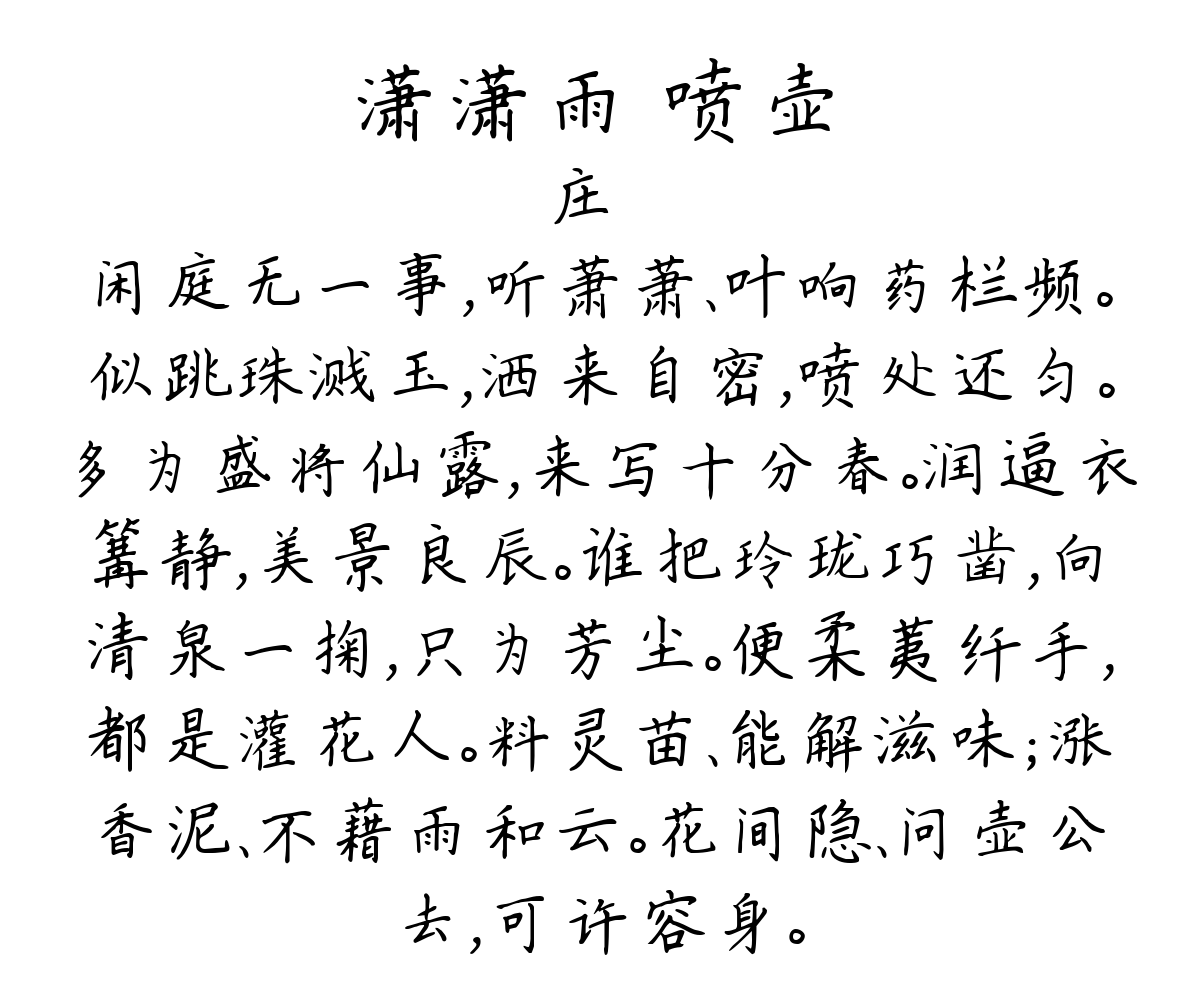 潇潇雨 喷壶
庄
闲庭无一事,听萧萧、叶响药栏频。
似跳珠溅玉,洒来自密,喷处还匀。
多为盛将仙露,来写十分春。润逼衣
篝静,美景良辰。谁把玲珑巧凿,向
清泉一掬,只为芳尘。便柔荑纤手,
都是灌花人。料灵苗、能解滋味;涨
香泥、不藉雨和云。花间隐、问壶公
去,可许容身。